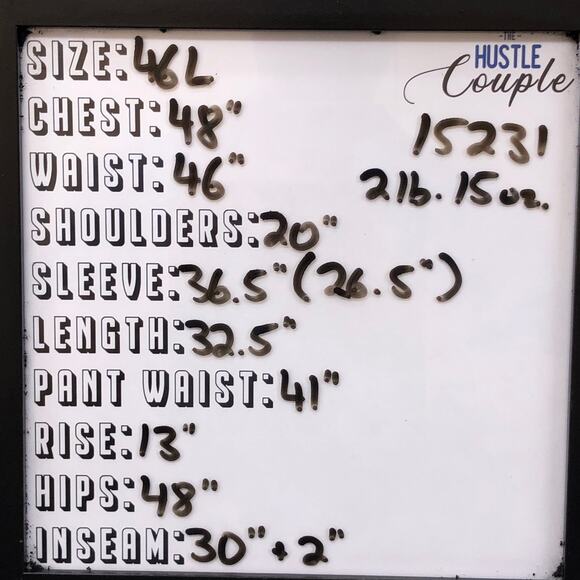 -THE-
HUSTLE
Couple
SIZE: 46L
CHEST: 48"
15231
WAIST: 46"
2lb. 15oz.
SHOULDERS: 20"
SLEEVE: 36.5" (26.5")
LENGTH: 32.5"
PANT WAIST: 41"
RISE: 13"
HIPS: 48"
INSEAM: 30" + 2"